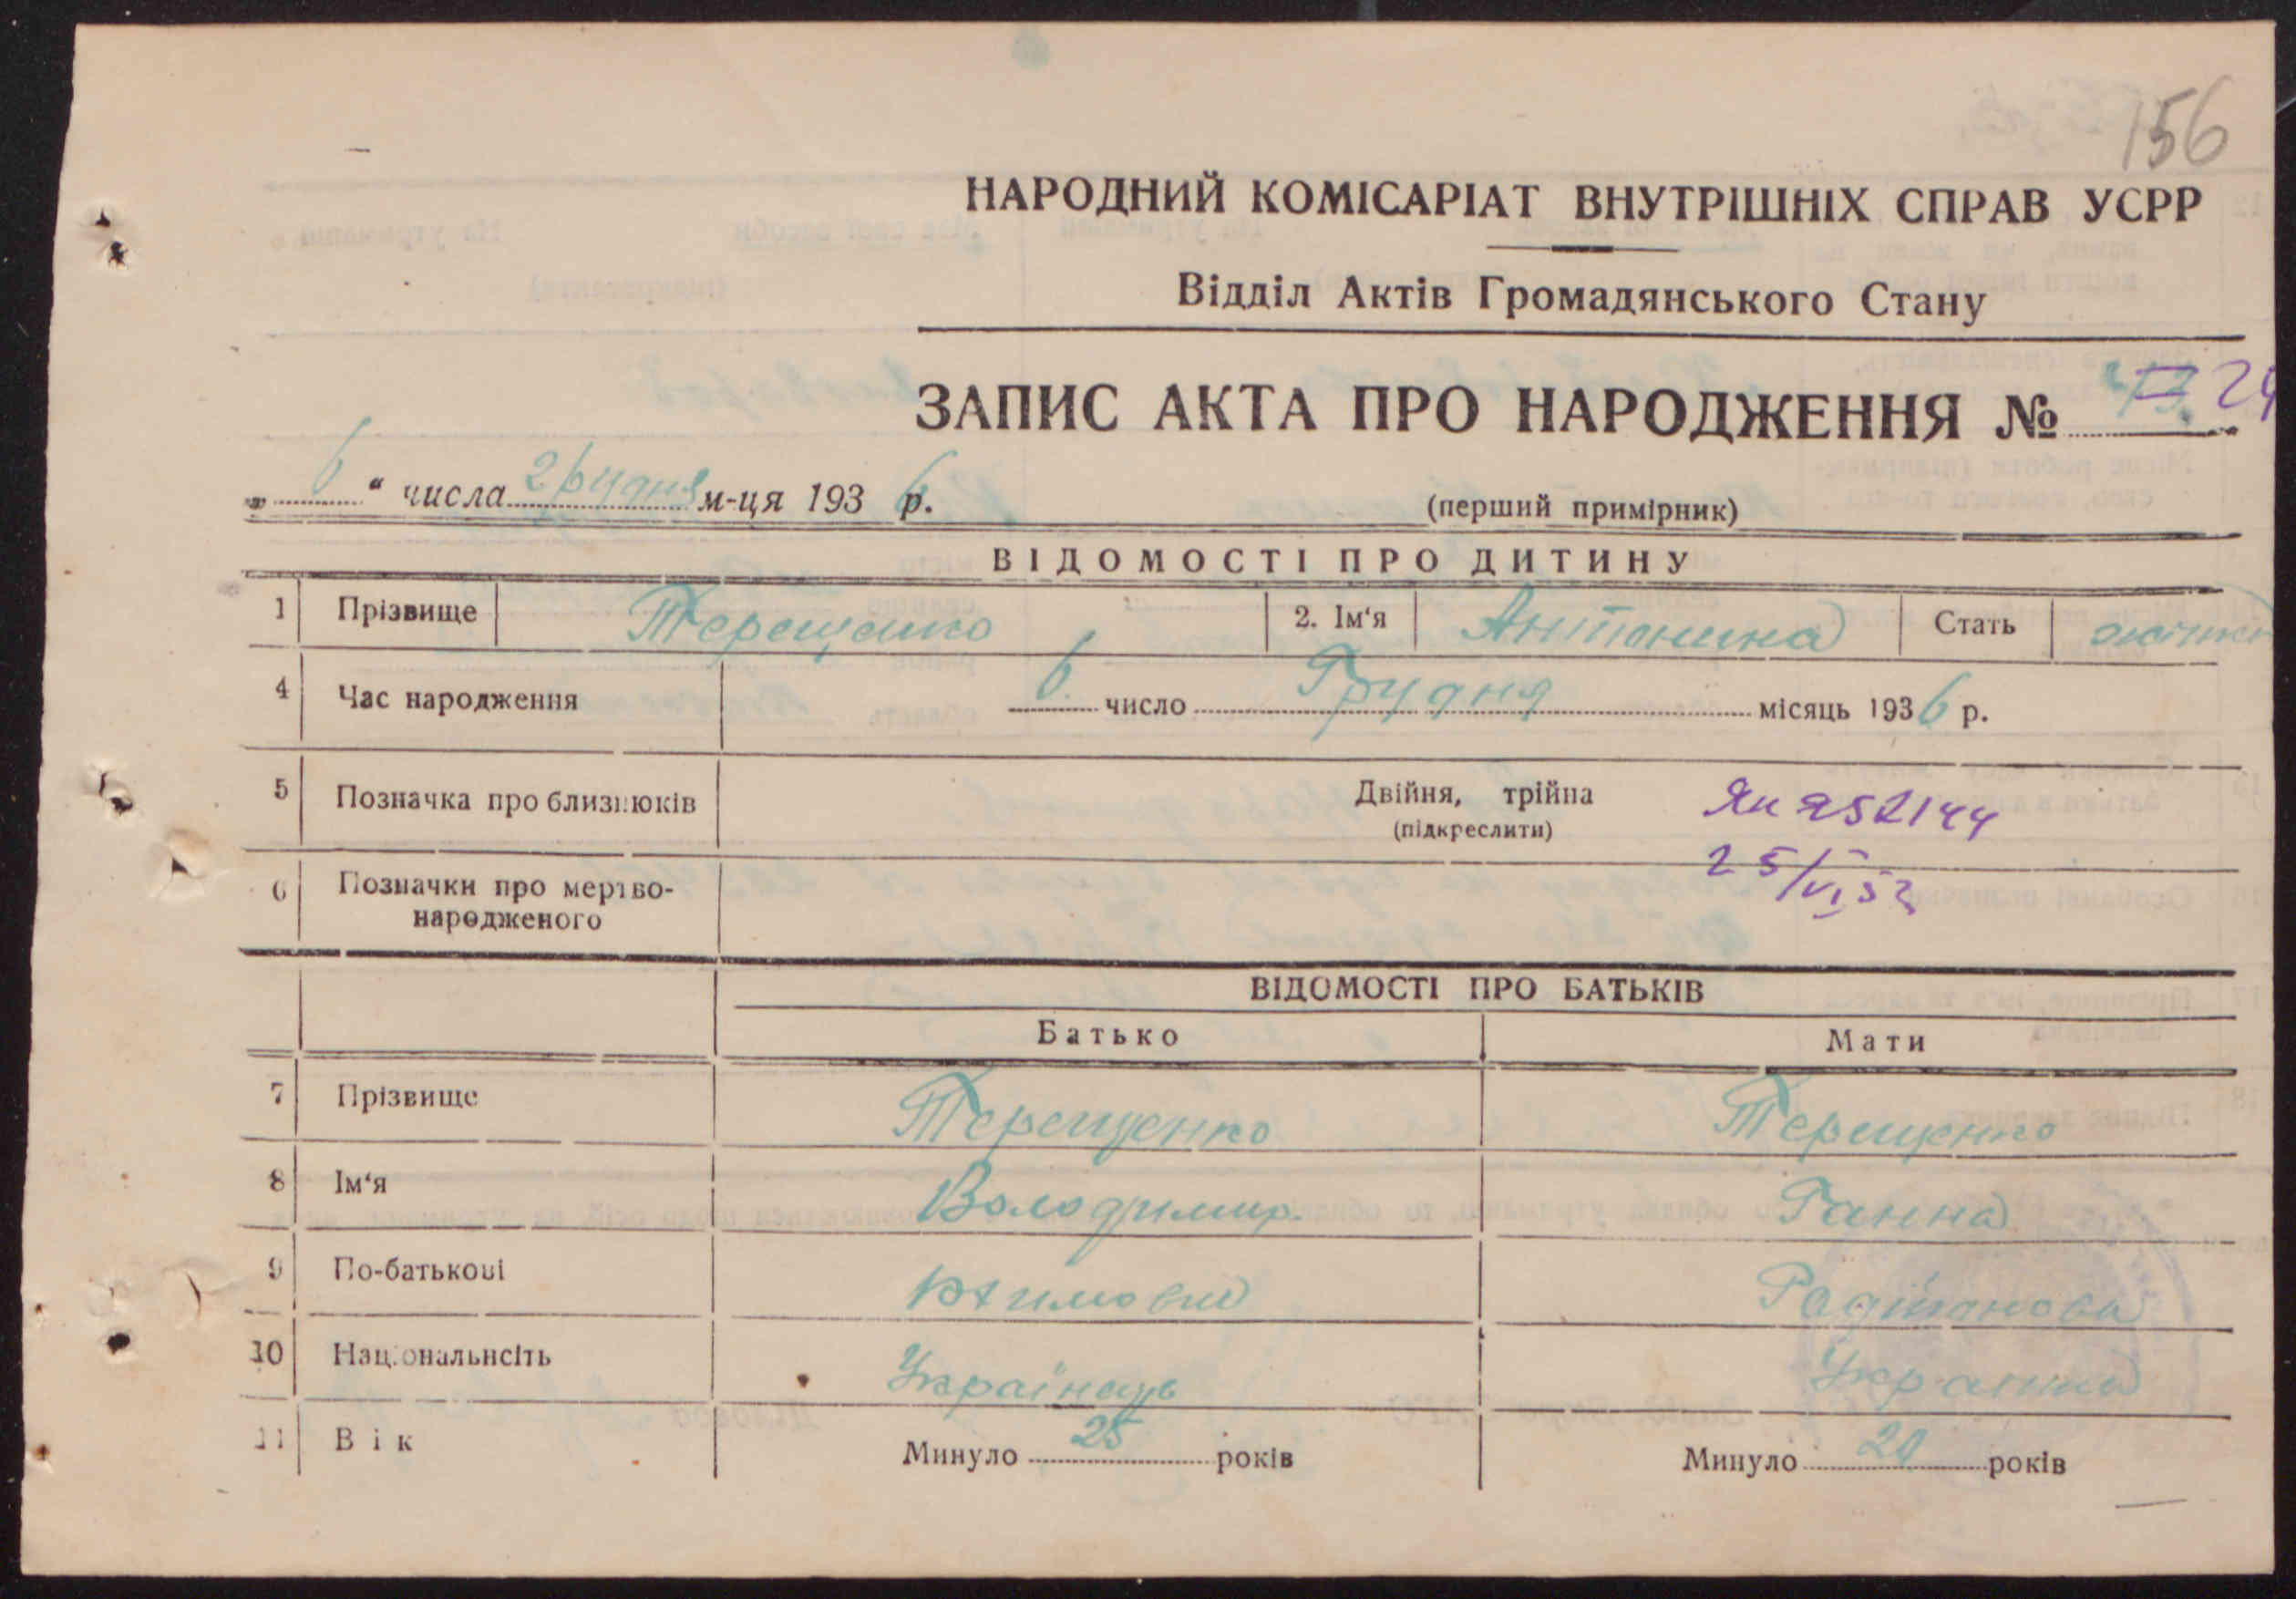 156
НАРОДНИЙ КОМІСАРІАТ ВНУТРІШНІХ СПРАВ УСРР
Відділ Актів Громадянського Стану
ЗАПИС АКТА ПРО НАРОДЖЕННЯ № 24
„ 6 “ числа грудня м-ця 193 6 р.
(перший примірник)
ВІДОМОСТІ ПРО ДИТИНУ
1 Прізвище Терещенко 2. Ім‘я Антонина Стать
4 Час народження 6 число Грудня місяць 193 6 р.
5 Позначка про близнюків Двійня, трійпа
(підкреслити)
25/VI 52
6 Позначки про мертво-
народженого
ВІДОМОСТІ ПРО БАТЬКІВ
Батько Мати
7 Прізвище Терещенко Терещенко
8 Ім‘я Володимир Ганна
9 По-батькові
10 Національнсіть Українець Українка
11 Вік Минуло 25 років Минуло років